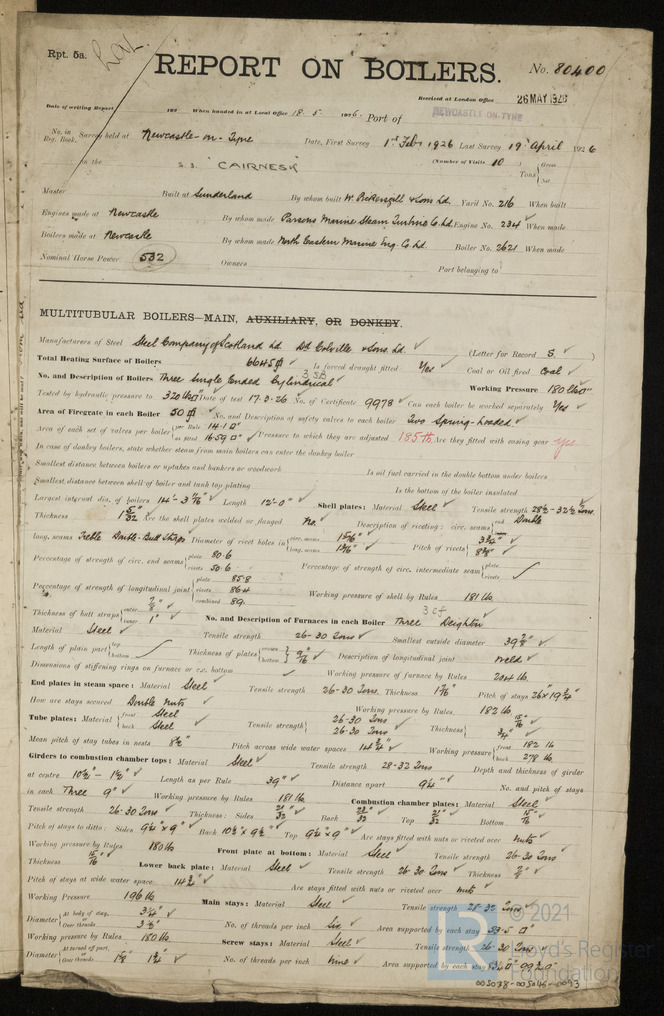 Rpt. 5a.
REPORT ON BOILERS.
No. 80400
Received at London Office 26 MAY 1926
Date of writing Report 192 When handed in at Local Office 18.5.1926. Port of NEWCASTLE-ON-TYNE
No. in Reg. Book. Survey held at Newcastle-on-Tyne Date, First Survey 1st Feby 1926 Last Survey 19th April 1926
on the S.S. "CAIRNESK" (Number of Visits 10) Tons Gross Net
Master Built at Sunderland By whom built W. Pickersgill & Sons Ld. Yard No. 216 When built
Engines made at Newcastle By whom made Parsons Marine Steam Turbine Co. Ld. Engine No. 234 When made
Boilers made at Newcastle By whom made North Eastern Marine Eng. Co. Ld. Boiler No. 2621 When made
Nominal Horse Power 532 Owners Port belonging to
MULTITUBULAR BOILERS—MAIN, AUXILIARY, OR DONKEY.
Manufacturers of Steel Steel Company of Scotland Ld D. Colville & Sons. Ld. (Letter for Record S.)
Total Heating Surface of Boilers 6645 Is forced draught fitted Yes Coal or Oil fired Coal
No. and Description of Boilers Three Single Ended Cylindrical 3 SB Working Pressure 180 lbs
Tested by hydraulic pressure to 320 lbs Date of test 17.3.26 No. of Certificate 9978 Can each boiler be worked separately Yes
Area of Firegrate in each Boiler 50 No. and Description of safety valves to each boiler Two Spring-loaded
Area of each set of valves per boiler per Rule 14.10" as fitted 16.59" Pressure to which they are adjusted 185 lb Are they fitted with easing gear yes
In case of donkey boilers, state whether steam from main boilers can enter the donkey boiler
Smallest distance between boilers or uptakes and bunkers or woodwork Is oil fuel carried in the double bottom under boilers
Smallest distance between shell of boiler and tank top plating Is the bottom of the boiler insulated
Largest internal dia. of boilers 14'-3 7/16" Length 12'-0" Shell plates: Material Steel Tensile strength 28½-32½ Tons.
Thickness 1 5/32" Are the shell plates welded or flanged No. Description of riveting: circ. seams end Double
long. seams Treble Double-Butt Straps Diameter of rivet holes in circ. seams long. seams Pitch of rivets
Percentage of strength of circ. end seams plate 80.6 rivets 50.6 Percentage of strength of circ. intermediate seam plate rivets
Percentage of strength of longitudinal joint plate 85.8 rivets 86.4 combined 89. Working pressure of shell by Rules 181 lb
Thickness of butt straps outer 7/8" inner 1" No. and Description of Furnaces in each Boiler Three Deighton 3 cf
Material Steel Tensile strength 26-30 Tons Smallest outside diameter 39 7/8"
Length of plain part top bottom Thickness of plates crown bottom 9/16" Description of longitudinal joint Weld
Dimensions of stiffening rings on furnace or c.c. bottom Working pressure of furnace by Rules 204 lb.
End plates in steam space: Material Steel Tensile strength 26-30 Tons. Thickness Pitch of stays 26" x 19¾"
How are stays secured Double nuts Working pressure by Rules. 182 lb
Tube plates: Material front Steel back Steel Tensile strength 26-30 Tons 26-30 Tons Thickness 15/16" ¾"
Mean pitch of stay tubes in nests 8½" Pitch across wide water spaces 14¾" Working pressure front 182 lb back 278 lb
Girders to combustion chamber tops: Material Steel Tensile strength 28-32 Tons Depth and thickness of girder
at centre 10½" - 1½" Length as per Rule 39" Distance apart 9¼" No. and pitch of stays
in each Three 9" Working pressure by Rules 181 lb Combustion chamber plates: Material Steel
Tensile strength 26-30 Tons Thickness: Sides 21/32 Back Top 21/32 Bottom 15/16
Pitch of stays to ditto: Sides 9¼" x 9" Back 10½" x 9½" Top 9¼" x 9" Are stays fitted with nuts or riveted over nuts
Working pressure by Rules 180 lb Front plate at bottom: Material Steel Tensile strength 26-30 Tons
Thickness 15/16 Lower back plate: Material Steel Tensile strength 26-30 Tons Thickness 7/8"
Pitch of stays at wide water space 14½" Are stays fitted with nuts or riveted over nuts
Working Pressure 196 lb Main stays: Material Steel Tensile strength 28-32 Tons
Diameter At body of stay, 3¼" Over threads 3½" No. of threads per inch Six Area supported by each stay
Working pressure by Rules 180 lb Screw stays: Material Steel Tensile strength 26-30 Tons
Diameter At turned off part, Over threads No. of threads per inch Nine Area supported by each stay
© 2021
Lloyd's Register
Foundation
005038-005045-0093